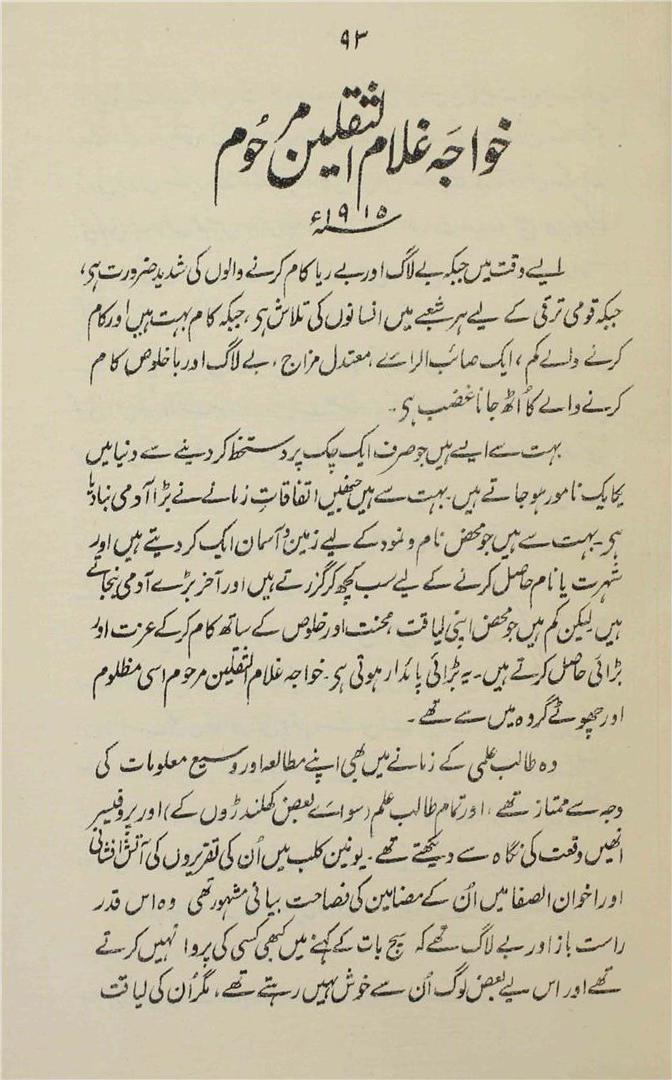 ۹۳
خواجَہ غلام الثقلین مرحُوم
۱۹۱۵ء
ایسے وقت میں جبکہ بے لاگ اور بے ریا کام کرنے والوں کی شدید ضرورت ہی،
جبکہ قومی ترقی کے لیے ہر شعبے میں انسانوں کی تلاش ہی، جبکہ کام بہت ہیں اور کام
کرنے والے کم، ایک صائب الرائے، معتدل مزاج، بے لاگ اور با خلوص کام
کرنے والے کا اُٹھ جانا غضب ہی۔
بہت سے ایسے ہیں جو صرف ایک چک پر دستخط کر دینے سے دنیا میں
یکایک نامور ہو جاتے ہیں۔ بہت سے ہیں جنھیں اتفاقاتِ زمانے نے بڑا آدمی بنا دیا
ہی۔ بہت سے ہیں جو محض نام و نمود کے لیے زمین و آسمان ایک کر دیتے ہیں اور
شہرت یا نام حاصل کرنے کے لیے سب کچھ کر گزرتے ہیں اور آخر بڑے آدمی بنجاتے
ہیں لیکن کم ہیں جو محض اپنی لیاقت، محنت اور خلوص کے ساتھ کام کر کے عزت اور
بڑائی حاصل کرتے ہیں۔ یہ بڑائی پائدار ہوتی ہی۔ خواجہ غلام الثقلین مرحوم اسی مظلوم
اور چھوٹے گروہ میں سے تھے۔
وہ طالب علمی کے زمانے میں بھی اپنے مطالعہ اور وسیع معلومات کی
وجہ سے ممتاز تھے، اور تمام طالب علم (سوائے بعض کھلنڈروں کے) اور پروفیسر
انھیں وقعت کی نگاہ سے دیکھتے تھے۔ یونین کلب میں اُن کی تقریروں کی آتش افشانی
اور اخوان الصفا میں اُن کے مضامین کی فصاحت بیانی مشہور تھی وہ اس قدر
راست باز اور بے لاگ تھے کہ سچ بات کے کہنے میں کبھی کسی کی پروا نہیں کرتے
تھے اور اس لیے بعض لوگ اُن سے خوش نہیں رہتے تھے، مگر اُن کی لیاقت